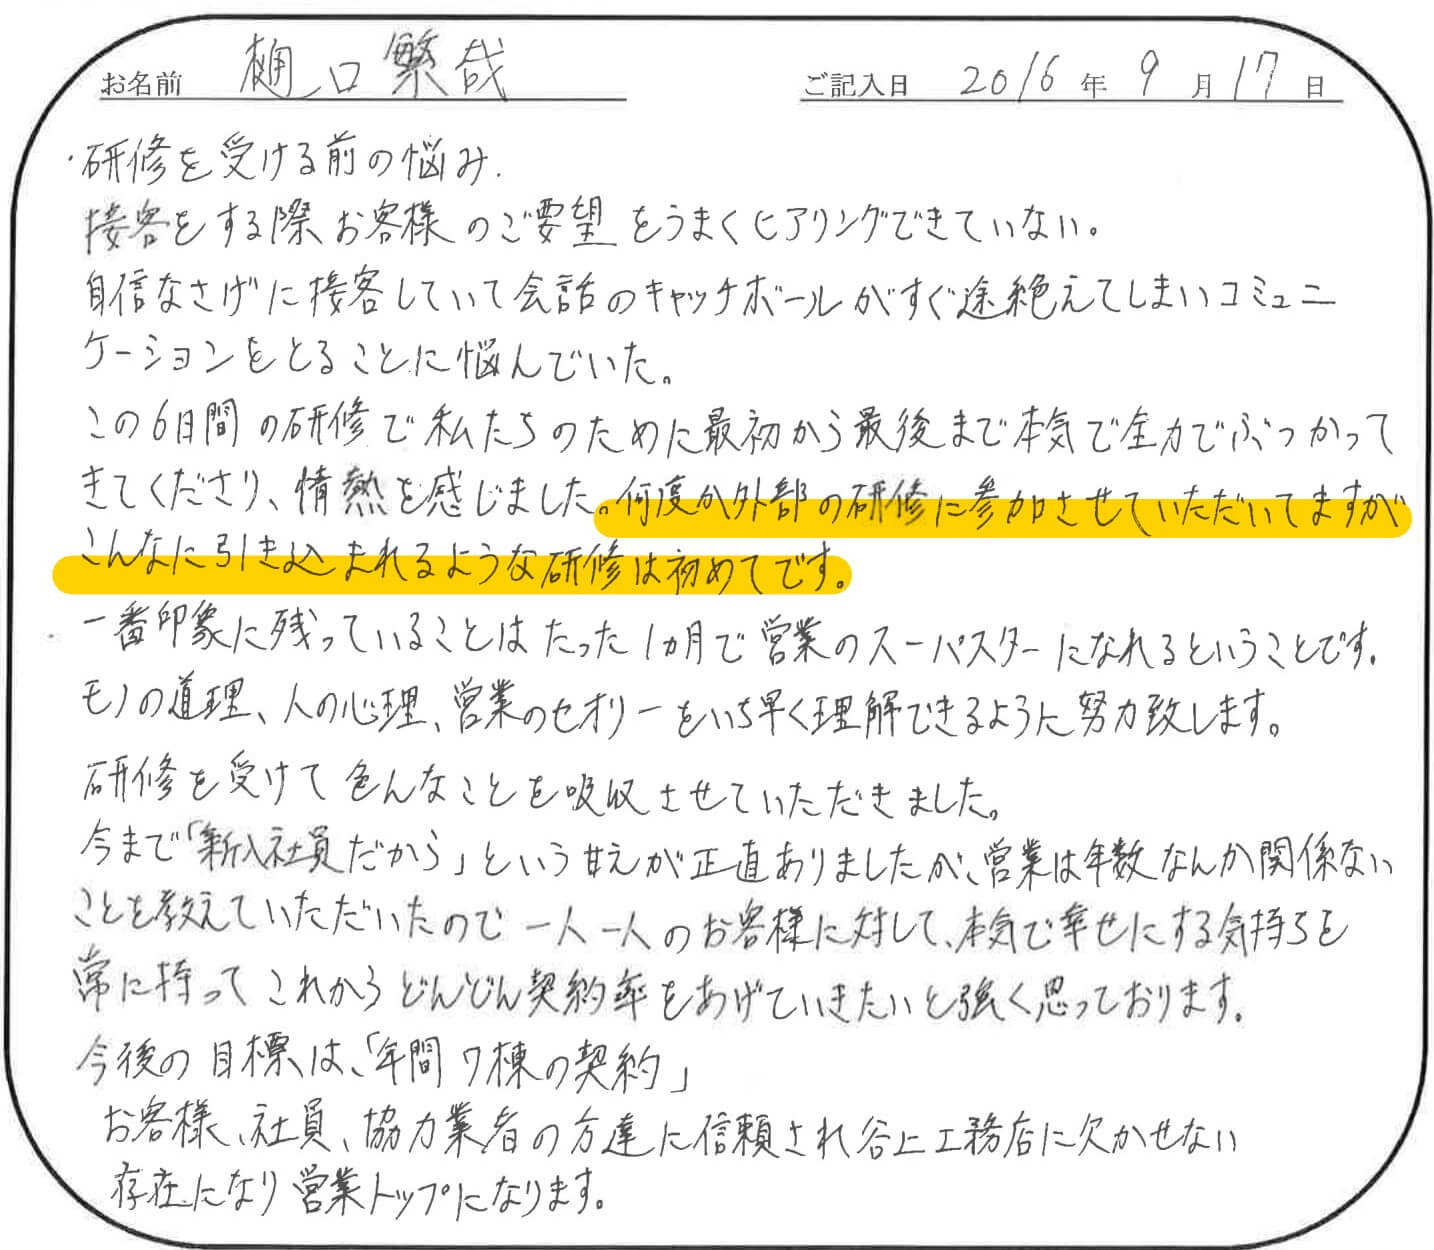 お名前 樋口繁哉 ご記入日 2016年9月17日
・研修を受ける前の悩み.
接客をする際お客様のご要望をうまくヒアリングできていない。
自信なさげに接客していて会話のキャッチボールがすぐ途絶えてしまいコミュニ
ケーションをとることに悩んでいた。
この6日間の研修で私たちのために最初から最後まで本気で全力でぶつかって
きてくださり、情熱を感じました。何度か外部の研修に参加させていただいてますが
こんなに引き込まれるような研修は初めてです。
一番印象に残っていることはたった1ヵ月で営業のスーパスターになれるということです.
モノの道理、人の心理、営業のセオリーをいち早く理解できるように努力致します。
研修を受けて色んなことを吸収させていただきました。
今まで「新入社員だから」という甘えが正直ありましたが、営業は年数なんか関係ない
ことを教えていただいたので一人一人のお客様に対して、本気で幸せにする気持ちを
常に持ってこれからどんどん契約率をあげていきたいと強く思っております。
今後の目標は、「年間7棟の契約」
お客様、社員、協力業者の方達に信頼され谷上工務店に欠かせない
存在になり営業トップになります。